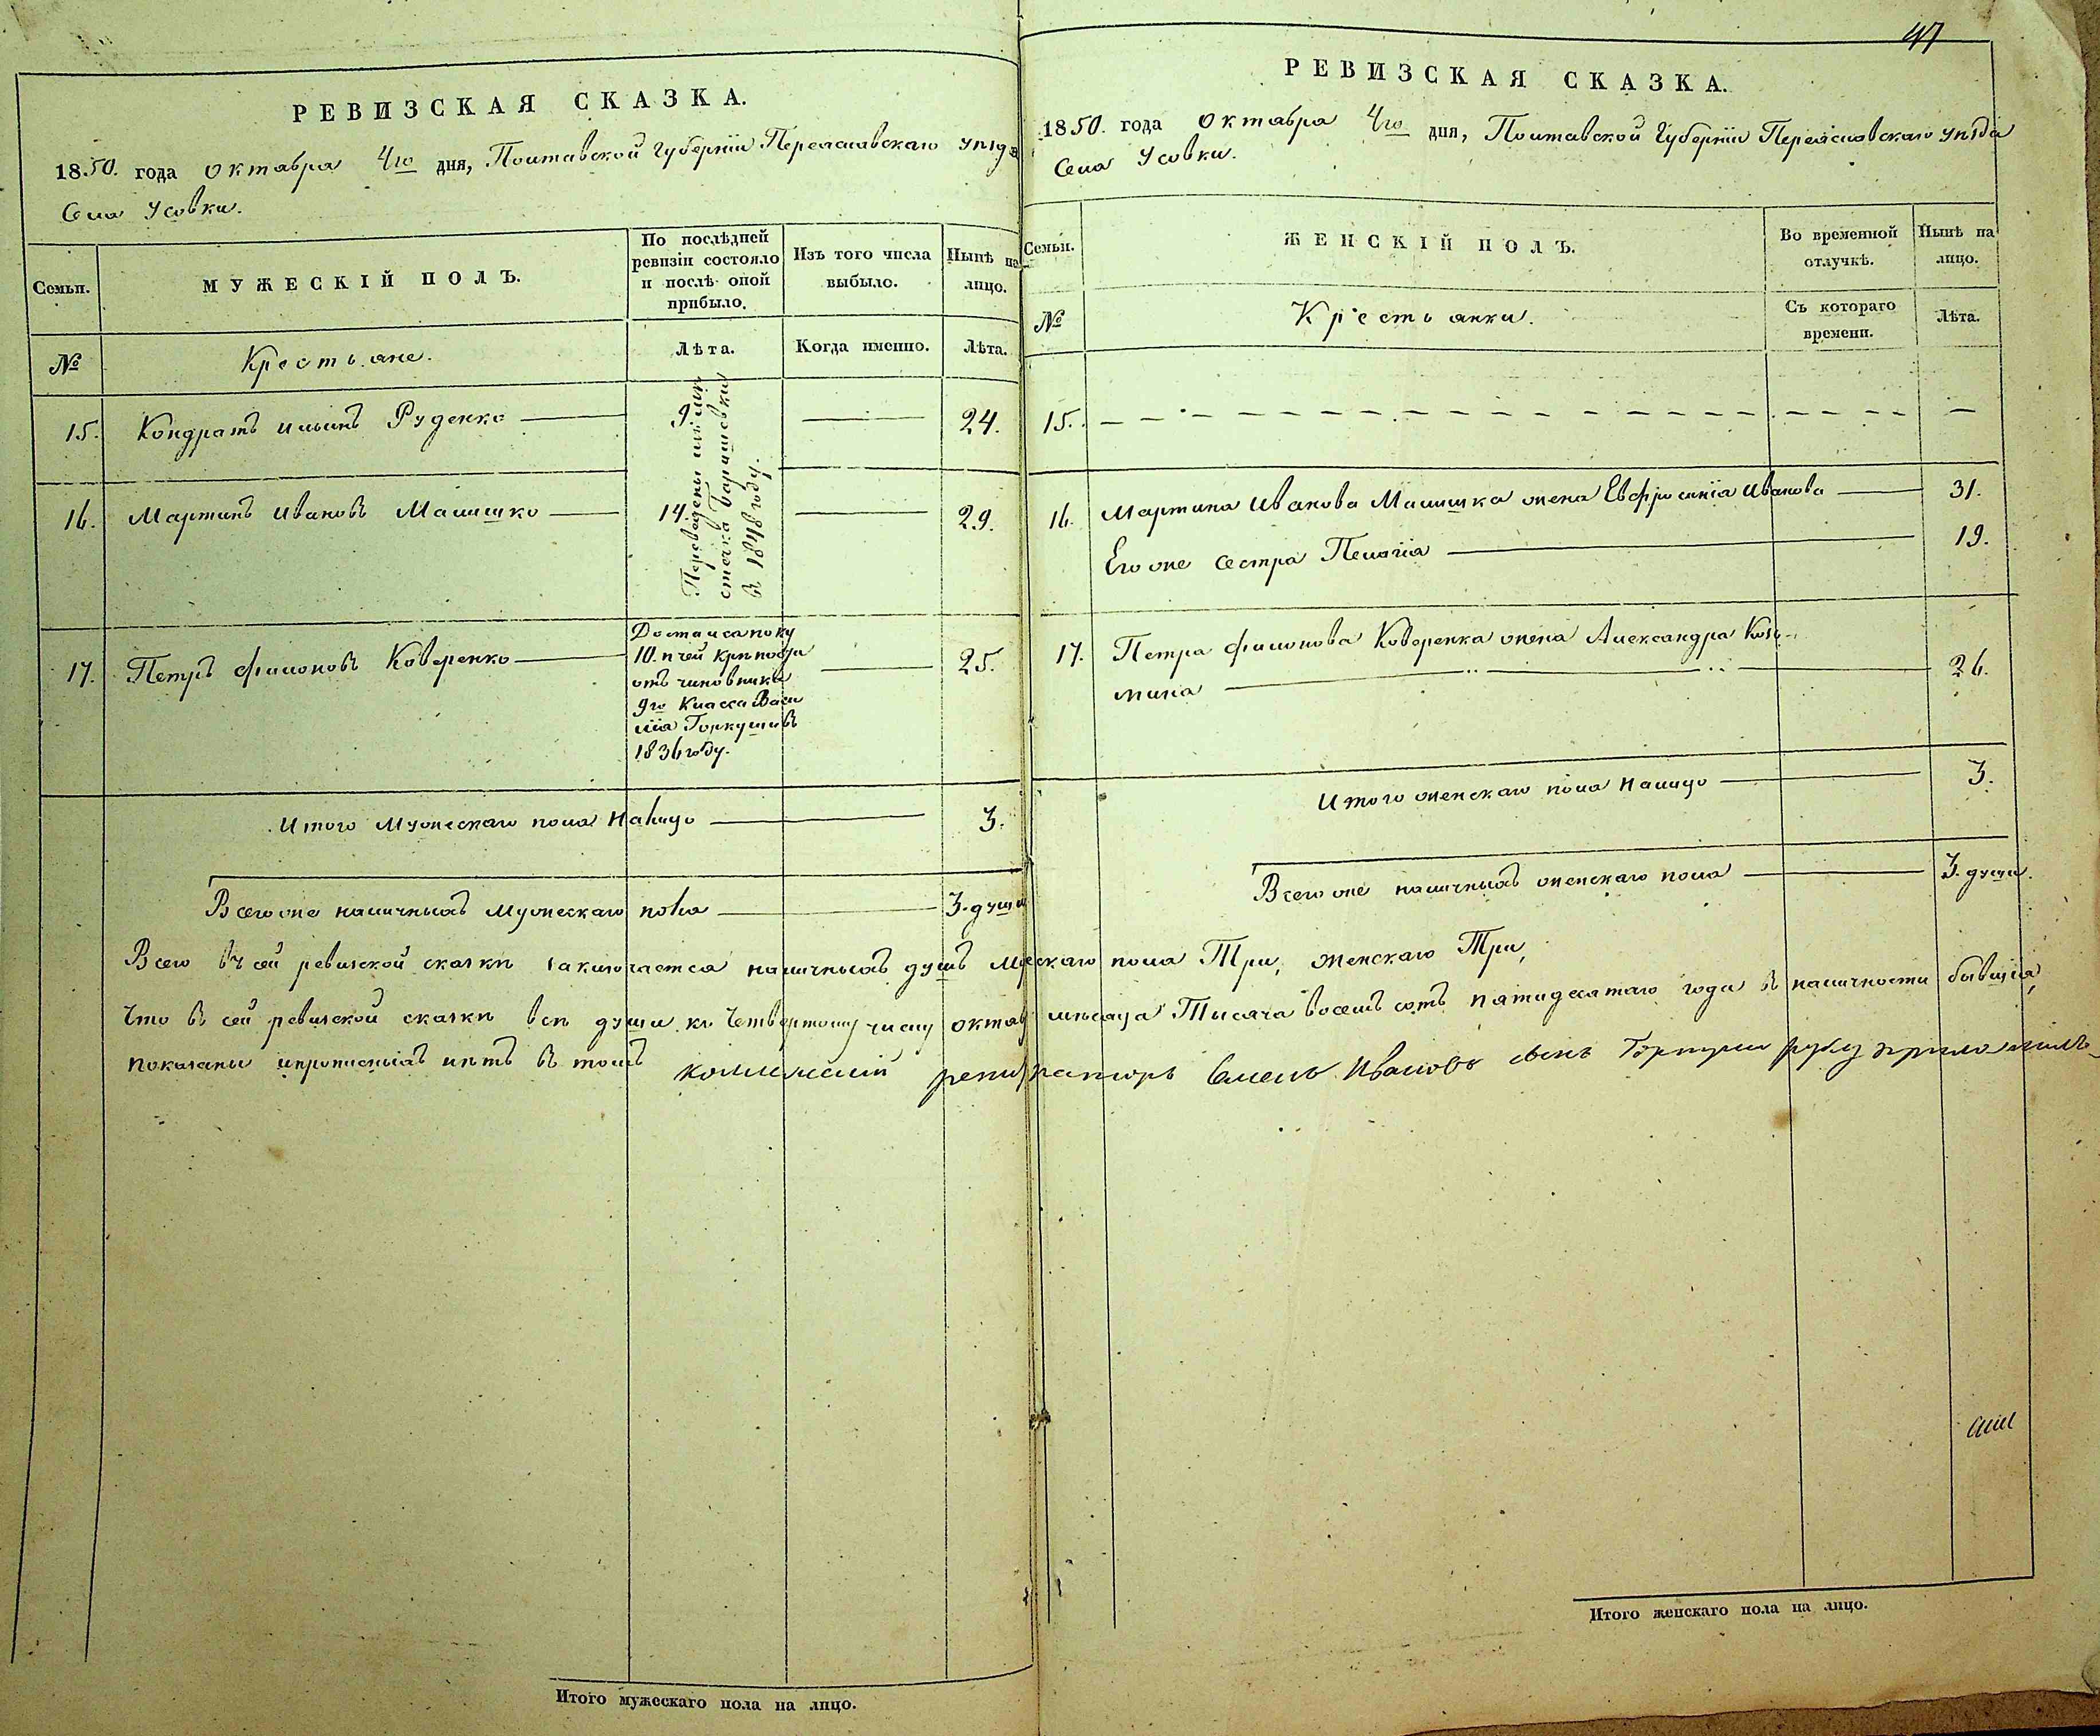 47
РЕВИЗСКАЯ СКАЗКА.
1850. года Октября 4го дня, Полтавской Губерніи Переяславскаго уѣзда
Села Усовки.
Семьи.
МУЖЕСКІЙ ПОЛЪ.
По послѣдней
ревизіи состояло
и послѣ оной
прибыло.
Изъ того числа
выбыло.
Нынѣ на
лицо.
№
Крестьяне.
Лѣта.
Когда именно.
Лѣта.
15. Кондратъ Ильинъ Руденко 9. 24.
16. Мартинъ Ивановъ Малишко 14. 29.
Переведены изъ мѣ
стечка Баришовки
въ 1848 году.
17. Петръ Филоновъ Коверенко 25.
Достался по ку
10. пчей крѣпости
отъ чиновника
9го Класса Васи
лія Горкуши въ
1836 году.
Итого Мужескаго пола Налицо 3.
Всего же наличныхъ мужескаго пола 3. души
РЕВИЗСКАЯ СКАЗКА.
1850. года Октября 4го дня, Полтавской Губерніи Переяславскаго уѣзда
Села Усовки.
Семьи.
ЖЕНСКІЙ ПОЛЪ.
Во временной
отлучкѣ.
Нынѣ на
лицо.
№
Крестьянки.
Съ котораго
времени.
Лѣта.
15.
16. Мартина Иванова Малишка жена Евфросинія Иванова 31.
Его же сестра Пелагія 19.
17. Петра Филонова Коверенка жена Александра Козь-
мина 26.
Итого женскаго пола Налицо 3.
Всего же наличныхъ женскаго пола 3. души.
Всего въ сей ревизской сказкѣ заключается наличныхъ душъ мужескаго пола Три, женскаго Три,
Что въ сей ревизской сказкѣ всѣ души къ Четвертому числу октября мѣсяца Тысяча восемь сотъ пятидесятаго года въ наличности бывшія,
показаны и прописныхъ нѣтъ въ томъ коллежскій регистраторъ Семенъ Ивановъ сынъ Горкуша руку приложилъ
Итого мужескаго пола на лицо.
Итого женскаго пола на лицо.